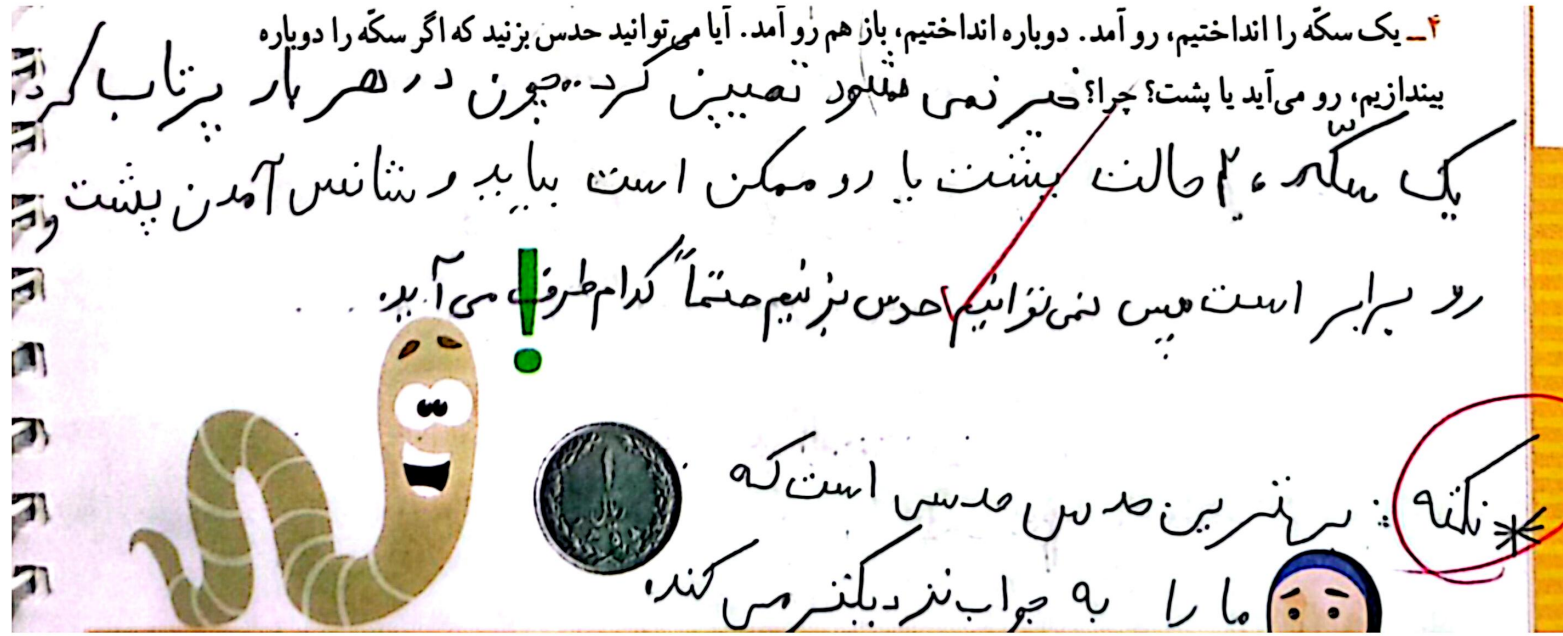 ۴ــ یک سکّه را انداختیم، رو آمد. دوباره انداختیم، باز هم رو آمد. آیا می‌توانید حدس بزنید که اگر سکّه را دوباره
بیندازیم، رو می‌آید یا پشت؟ چرا؟ خیر نمی شود تعیین کرد. چون در هر بار پرتاب کردن
یک سکّه، ۲ حالت پشت یا رو ممکن است بیاید و شانس آمدن پشت و
رو برابر است پس نمی‌توانیم حدس بزنیم حتماً کدام طرف می‌آید.
!
۱
ریال
* نکته : بهترین حدس حدسی است که
ما را به جواب نزدیکتر می کند.